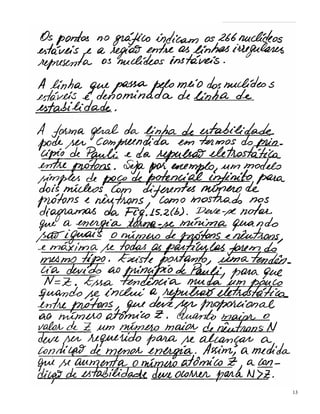 Os pontos no gráfico indicam os 266 nuclídeos
estáveis, e a região entre as linhas irregulares
representa os nuclídeos instáveis.
A linha que passa pelo meio dos nuclídeos
estáveis é denominada de linha de
estabilidade.
A forma geral da linha de estabilidade
pode ser compreendida em termos do prin-
cípio de Pauli e da repulsão eletrostática
entre prótons. Seja por exemplo, um modelo
simples de poço de potencial infinito, para
dois núcleos com diferentes número de
prótons e nêutrons, como mostrado nos
diagramas da Fig.15.2(b). Deve-se notar
que a energia torna-se mínima quando
são iguais o número de prótons e nêutrons
e máxima se todas as partículas forem do
mesmo tipo. Existe portanto, uma tendên-
cia devido ao princípio de Pauli, para que
N=Z. Essa tendência muda um pouco
quando se inclui a repulsão eletrostática
entre prótons, que deve ser proporcional
ao número atômico Z. Quanto maior o
valor de Z um número maior de nêutrons N
deve ser requerido para se alcançar a
condição de menor energia. Assim, a medida
que se aumenta o número atômico Z, a con-
dição de estabilidade deve ocorrer para N>Z.
13